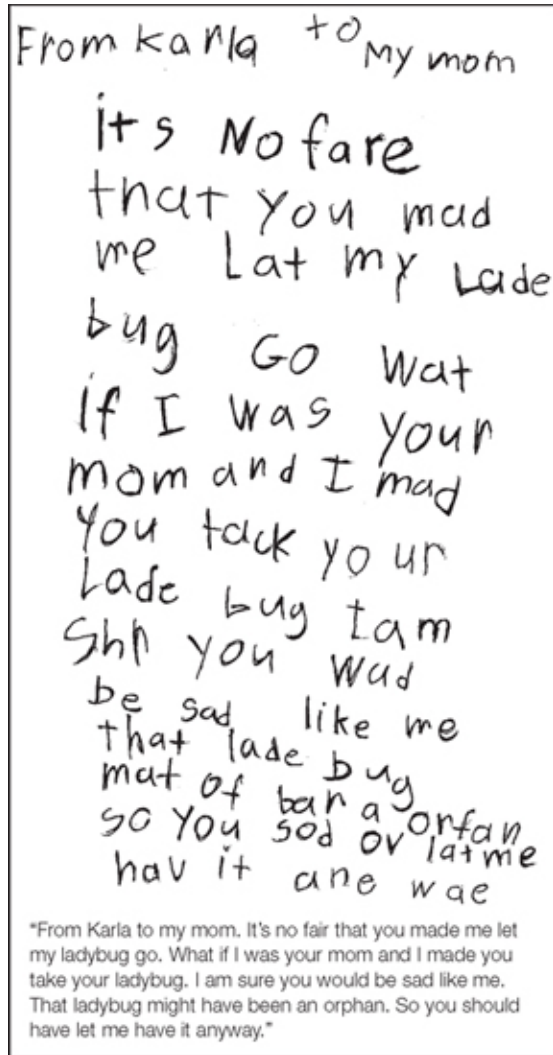 From Karla to My mom
it s No fare
that you mad
me Lat my Lade
bug Go Wat
if I was your
mom and I mad
you tack your
Lade bug Iam
Shr you Wud
be sad like me
that lade bug
mat of ban a orfan
so you sod ov lat me
hav it ane wae
"From Karla to my mom. It's no fair that you made me let
my ladybug go. What if I was your mom and I made you
take your ladybug. I am sure you would be sad like me.
That ladybug might have been an orphan. So you should
have let me have it anyway."